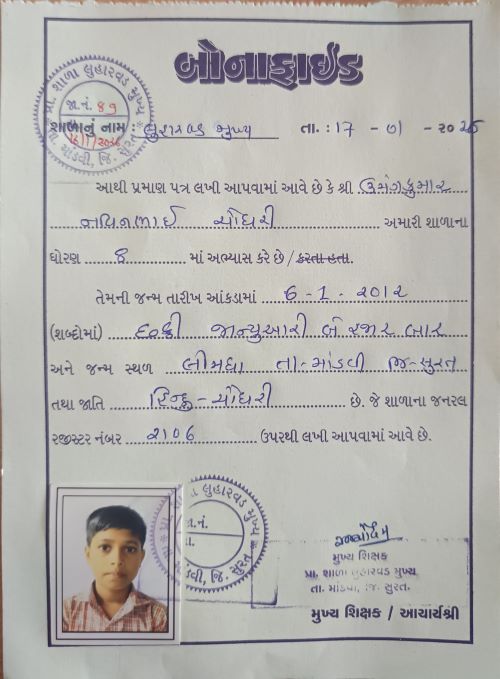 બોનાફાઈડ
પ્રા. શાળા લુહારવડ મુખ્ય
જા.નં. 89
તા. માંડવી, જિ. સુરત
શાળાનું નામ : લુહારવડ મુખ્ય તા. : 17 - 01 - ૨૦૨6
આથી પ્રમાણ પત્ર લખી આપવામાં આવે છે કે શ્રી ઉમંગકુમાર
નવિનભાઈ ચૌધરી અમારી શાળાના
ધોરણ 8 માં અભ્યાસ કરે છે / કરતા હતા.
તેમની જન્મ તારીખ આંકડામાં 6 - 1 - ૨૦1૨
(શબ્દોમાં) છઠ્ઠી જાન્યુઆરી બે હજાર બાર
અને જન્મ સ્થળ લીમધા તા - માંડવી જિ - સુરત
તથા જાતિ હિન્દુ - ચૌધરી છે. જે શાળાના જનરલ
રજીસ્ટર નંબર ૨106 ઉપરથી લખી આપવામાં આવે છે.
લુહારવડ મુખ્ય
જા.નં.
તા.
માંડવી, જિ. સુરત
મુખ્ય શિક્ષક
પ્રા. શાળા લુહારવડ મુખ્ય
તા. માંડવી, જિ. સુરત.
મુખ્ય શિક્ષક / આચાર્યશ્રી